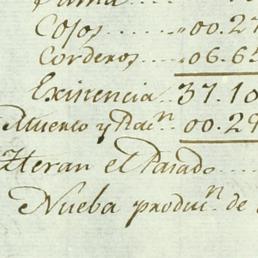 Cojos ..... 00.27
Corderos .... 06.65
Existencia .. 37.10
Muerto y Rac.n 00.29
Yteran el Pasado ....
Nueba produc.n de